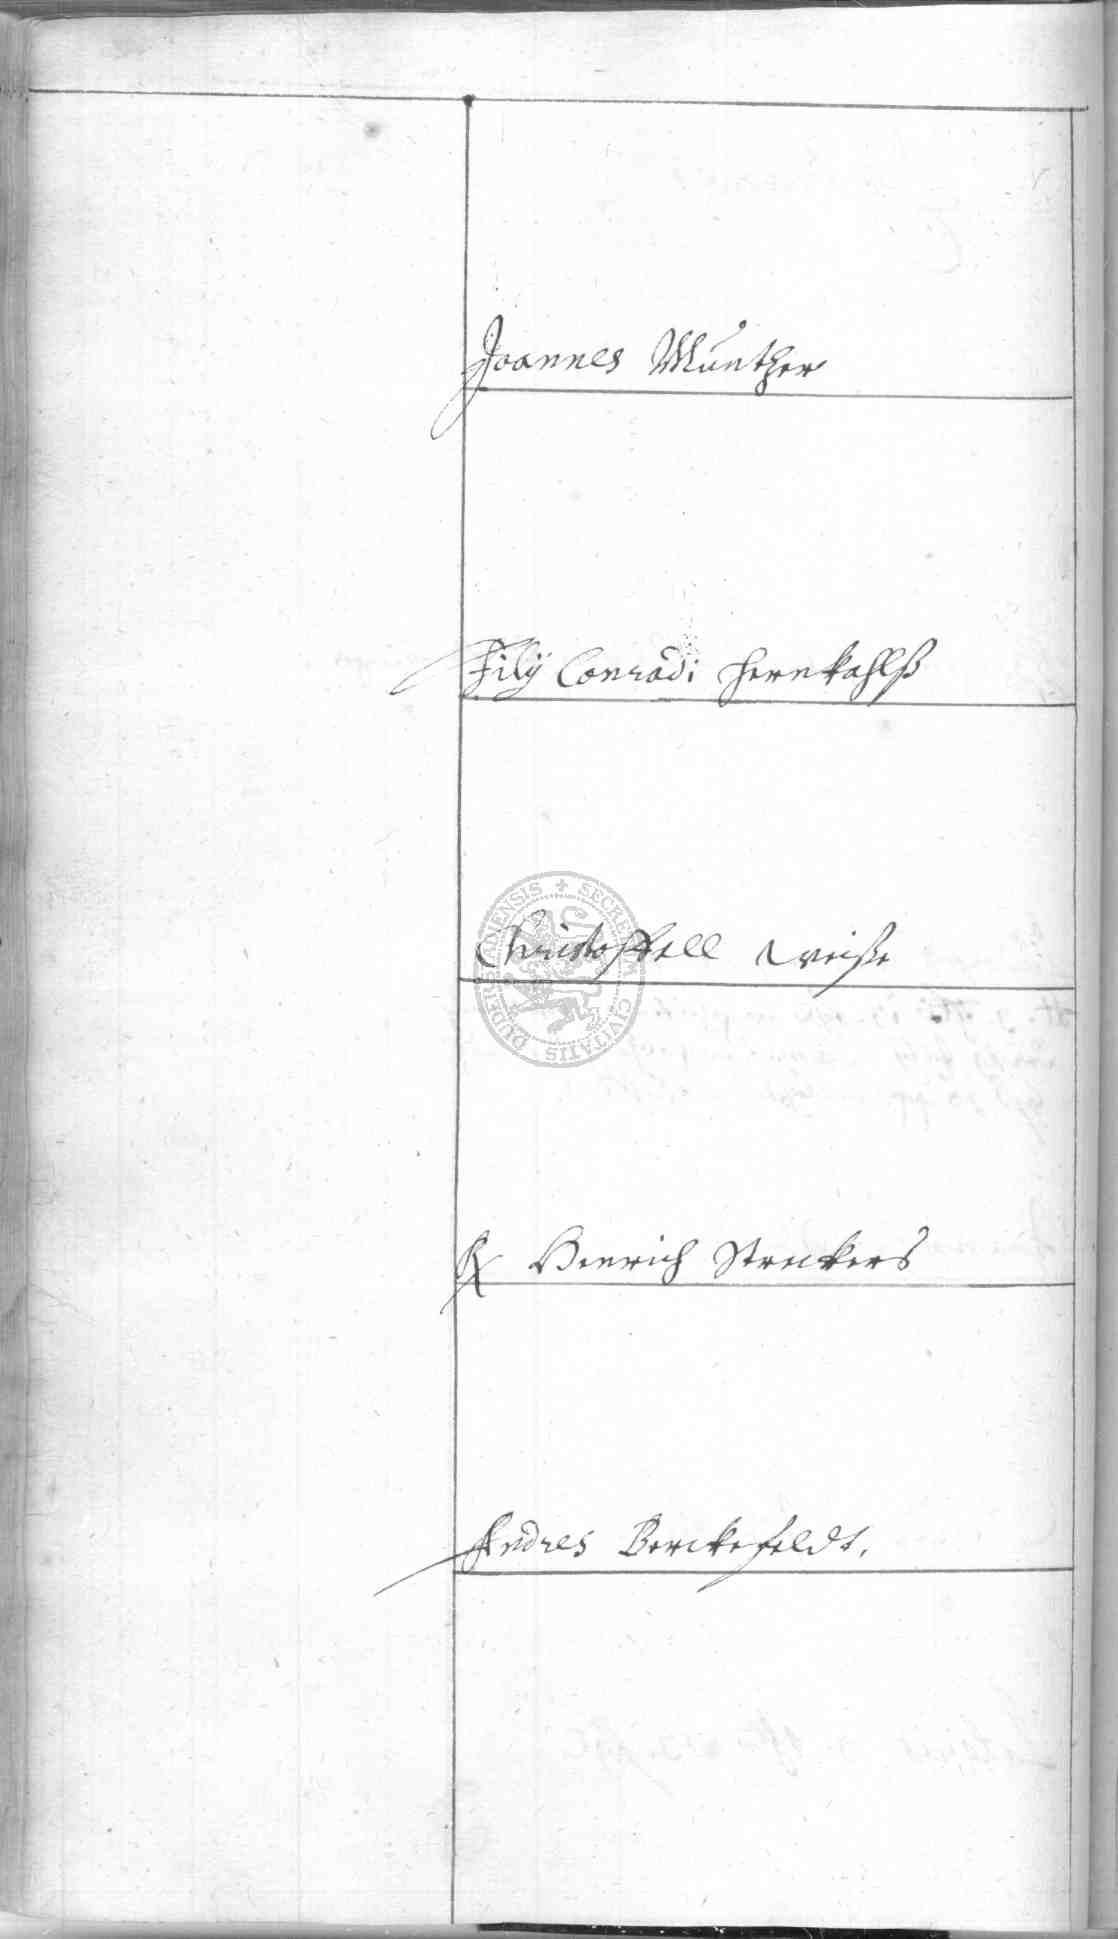 Joannes Munther
Filij Conradi Hernkahlß
Christoffell Weiße
Henrich Streckers
Andres Berckefeldt.
SECRETUM CIVITATIS DUDERSTADENSIS